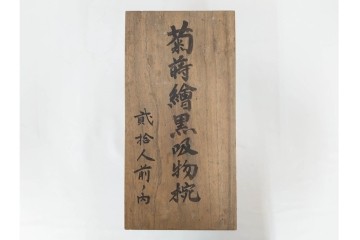 菊蒔繪黒吸物椀
貮拾人前ノ内